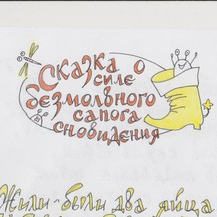 Сказка о
силе
безмолвного
сапога
сновидения
Жили-были два яйца